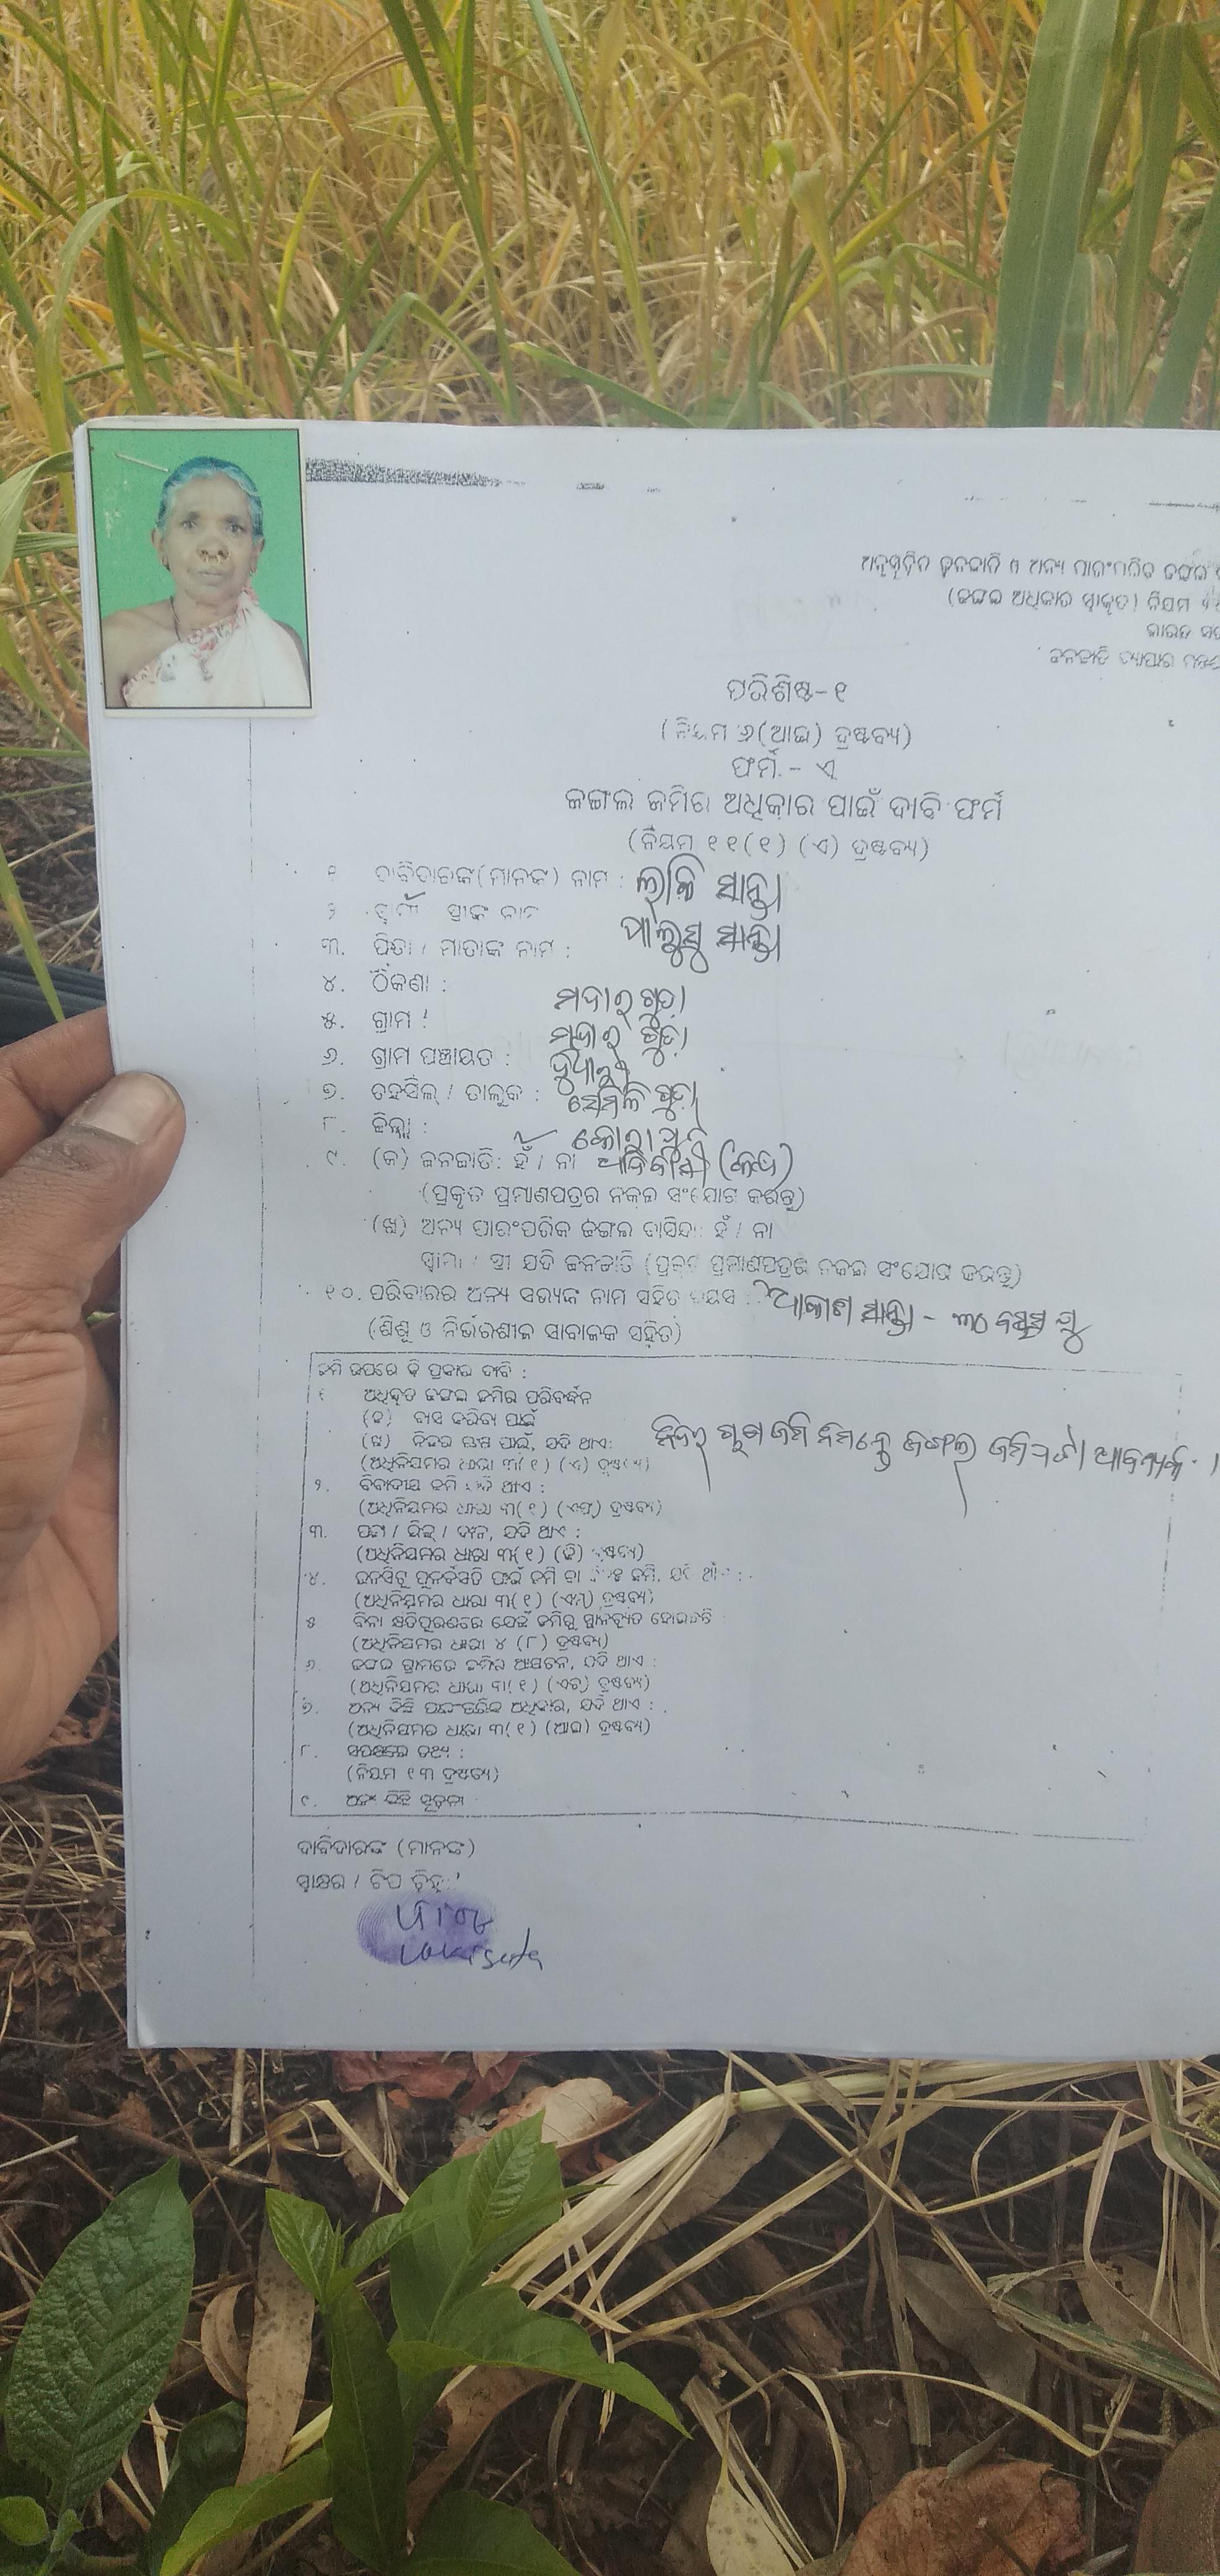 ଅନୁସୂଚିତ ଜନଜାତି ଓ ଅନ୍ୟ ପାରଂପରିକ ଜଙ୍ଗଲ
(ଜଙ୍ଗଲ ଅଧିକାର ସ୍ୱୀକୃତ) ନିୟମ
ଭାରତ
ଜନଜାତି ବ୍ୟାପାର
ପରିଶିଷ୍ଟ-୧
(ନିୟମ ୬(ଆଇ) ଦ୍ରଷ୍ଟବ୍ୟ)
ଫର୍ମ - ଏ
ଜଙ୍ଗଲ ଜମିର ଅଧିକାର ପାଇଁ ଦାବି ଫର୍ମ
(ନିୟମ ୧୧(୧) (ଏ) ଦ୍ରଷ୍ଟବ୍ୟ)
୧ ଦାବିଦାରଙ୍କ(ମାନଙ୍କ) ନାମ : ଲକି ସାନ୍ତା
୨ ସ୍ୱାମୀ ସ୍ତ୍ରୀଙ୍କ ନାମ
୩. ପିତା / ମାତାଙ୍କ ନାମ : ସାନ୍ତା
୪. ଠିକଣା : ମଦାର୍ ଗୁଡ଼ା
୫. ଗ୍ରାମ : ମଦାର୍ ଗୁଡ଼ା
୬. ଗ୍ରାମ ପଞ୍ଚାୟତ :
୭. ତହସିଲ୍ / ତାଲୁକ : ସେମିଳିଗୁଡ଼ା
୮. ଜିଲ୍ଲା : କୋରାପୁଟ
୯. (କ) ଜନଜାତି: ହଁ / ନା ଆଦିବାସୀ (କନ୍ଧ)
(ପ୍ରକୃତ ପ୍ରମାଣପତ୍ରର ନକଲ ସଂଯୋଗ କରନ୍ତୁ)
(ଖ) ଅନ୍ୟ ପାରଂପରିକ ଜଙ୍ଗଲ ବାସିନ୍ଦା: ହଁ / ନା
ସ୍ୱାମୀ / ସ୍ତ୍ରୀ ଯଦି ଜନଜାତି (ପ୍ରକୃତ ପ୍ରମାଣପତ୍ରର ନକଲ ସଂଯୋଗ କରନ୍ତୁ)
୧୦. ପରିବାରର ଅନ୍ୟ ସଭ୍ୟଙ୍କ ନାମ ସହିତ ବୟସ : ଆକାଶ ସାନ୍ତା - ୩୦
(ଶିଶୁ ଓ ନିର୍ଭରଶୀଳ ସାବାଳକ ସହିତ)
ଜମି ଉପରେ କି ପ୍ରକାର ଦାବି :
୧ ଅଧିକୃତ ଜଙ୍ଗଲ ଜମିର ପରିବର୍ଦ୍ଧନ
(କ) ବାସ କରିବା ପାଇଁ
(ଖ) ନିଜର ଚାଷ ପାଇଁ, ଯଦି ଥାଏ: ଜମି ନିମନ୍ତେ ଜଙ୍ଗଲ୍ ଆବଶ୍ୟକ ।
(ଅଧିନିୟମର ଧାରା ୩(୧) (ଏ) ଦ୍ରଷ୍ଟବ୍ୟ)
୨. ବିବାଦୀୟ ଜମି ଯଦି ଥାଏ :
(ଅଧିନିୟମର ଧାରା ୩(୧) (ଏଫ୍) ଦ୍ରଷ୍ଟବ୍ୟ)
୩. ପଟ୍ଟା / ଲିଜ୍ / ଦାନ, ଯଦି ଥାଏ :
(ଅଧିନିୟମର ଧାରା ୩(୧) (ଜି) ଦ୍ରଷ୍ଟବ୍ୟ)
୪. ଇନସିଟୁ ପୁନର୍ବସତି ପାଇଁ ଜମି ବା ଜମି, ଯଦି ଥାଏ :
(ଅଧିନିୟମର ଧାରା ୩(୧) (ଏମ୍) ଦ୍ରଷ୍ଟବ୍ୟ)
୫ ବିନା କ୍ଷତିପୂରଣରେ ଯେଉଁ ଜମିରୁ ସ୍ଥାନଚ୍ୟୁତ ହୋଇଛନ୍ତି
(ଅଧିନିୟମର ଧାରା ୪ (୮) ଦ୍ରଷ୍ଟବ୍ୟ)
୬. ଜଙ୍ଗଲ ଗ୍ରାମରେ ଜମିର ଆୟତନ, ଯଦି ଥାଏ :
(ଅଧିନିୟମର ଧାରା ୩(୧) (ଏଚ୍) ଦ୍ରଷ୍ଟବ୍ୟ)
୭. ଅନ୍ୟ କିଛି ପାରଂପରିକ ଅଧିକାର, ଯଦି ଥାଏ :
(ଅଧିନିୟମର ଧାରା ୩(୧) (ଆଇ) ଦ୍ରଷ୍ଟବ୍ୟ)
୮. ସପକ୍ଷରେ ତଥ୍ୟ :
(ନିୟମ ୧୩ ଦ୍ରଷ୍ଟବ୍ୟ)
୯. ଅନ୍ୟ କିଛି ସୂଚନା
ଦାବିଦାରଙ୍କ (ମାନଙ୍କ)
ସ୍ୱାକ୍ଷର / ଟିପ ଚିହ୍ନ: